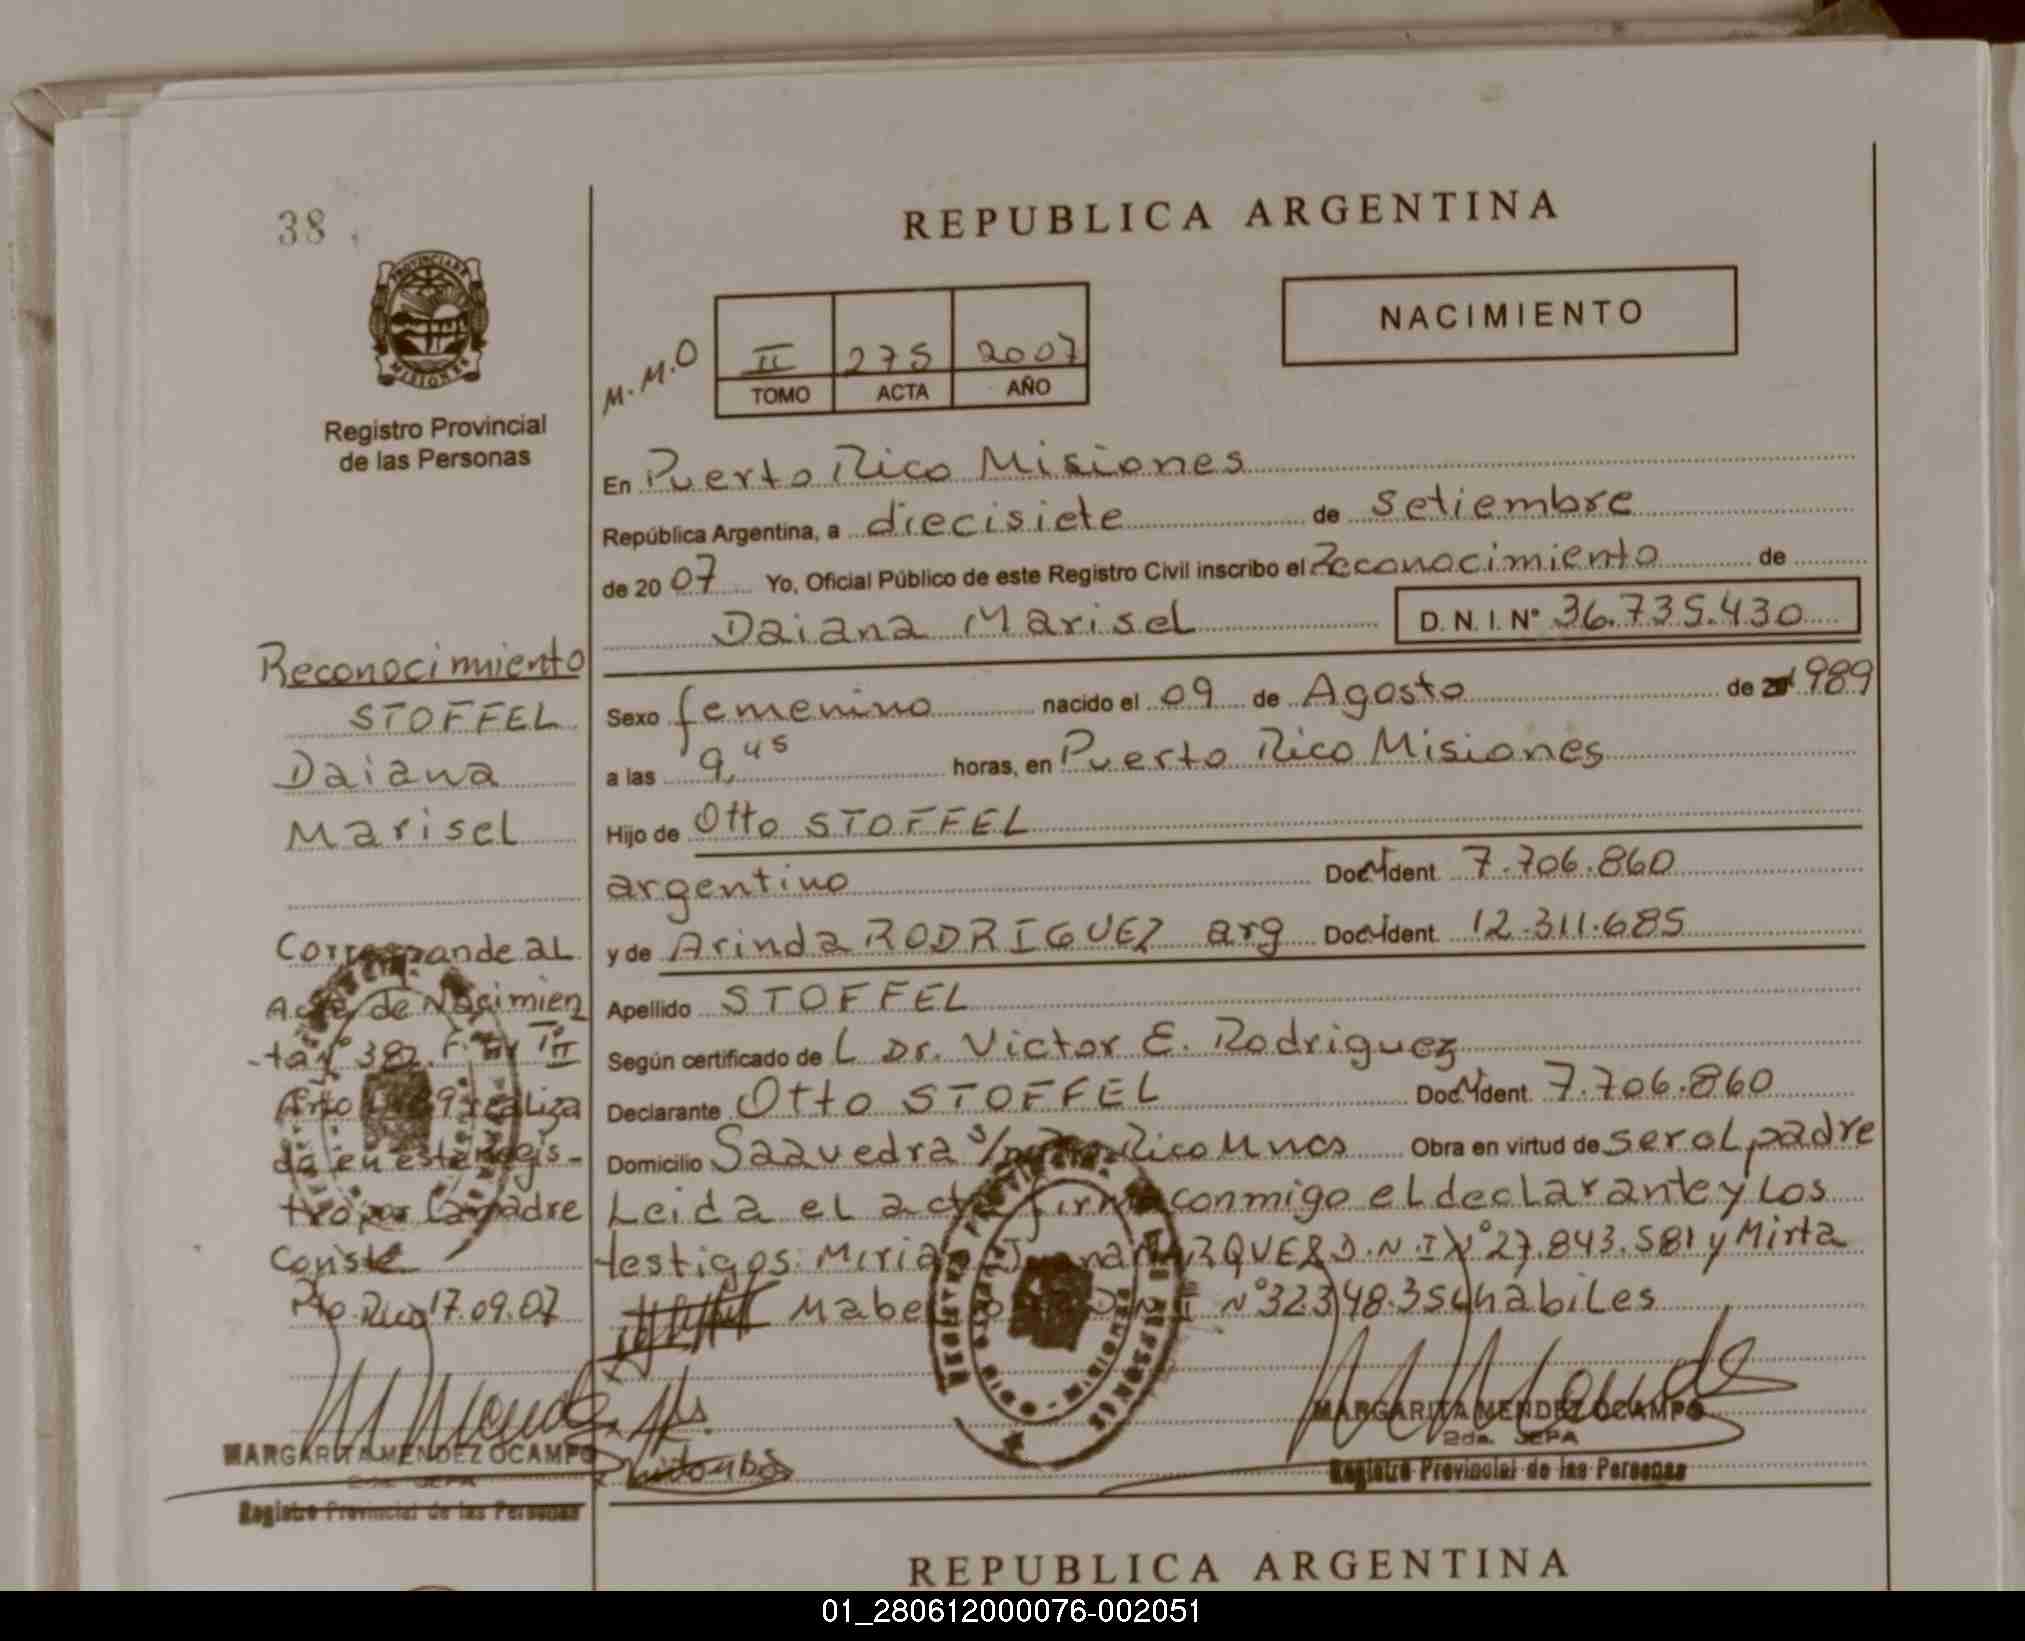 38
PROVINCIA DE
MISIONES
Registro Provincial
de las Personas
Reconocimiento
STOFFEL
Daiana
Marisel
Corresponde al
Acta de Nacimien
-to Nº 382. III
Año 1989 realiza
da en este Regis-
tro por la madre
Conste
Pto Rico 17.09.07
MARGARITA MENDEZ OCAMPO
2da. JEFA
Registro Provincial de las Personas
REPUBLICA ARGENTINA
M.M.O
II 275 2007
TOMO ACTA AÑO
NACIMIENTO
En Puerto Rico Misiones
República Argentina, a diecisiete de setiembre
de 2007 Yo, Oficial Público de este Registro Civil inscribo el Reconocimiento de
Daiana Marisel D.N.I. Nº 36.735.430
Sexo femenino nacido el 09 de Agosto de 1989
a las 9,45 horas, en Puerto Rico Misiones
Hijo de Otto STOFFEL
argentino Doc. Ident. 7.706.860
y de Arinda RODRIGUEZ arg Doc. Ident. 12.311.685
Apellido STOFFEL
Según certificado de L Dr. Victor E. Rodriguez
Declarante Otto STOFFEL Doc. Ident. 7.706.860
Domicilio Saavedra s/n Rico Mnes Obra en virtud de ser el padre
Leida el acta firma conmigo el declarante y los
testigos: Miriam D.N.I Nº 27.843.581 y Mirta
Mabel Nº 32.348.354 habiles
MARGARITA MENDEZ OCAMPO
2da. JEFA
Registro Provincial de las Personas
REPUBLICA ARGENTINA
01_280612000076-002051